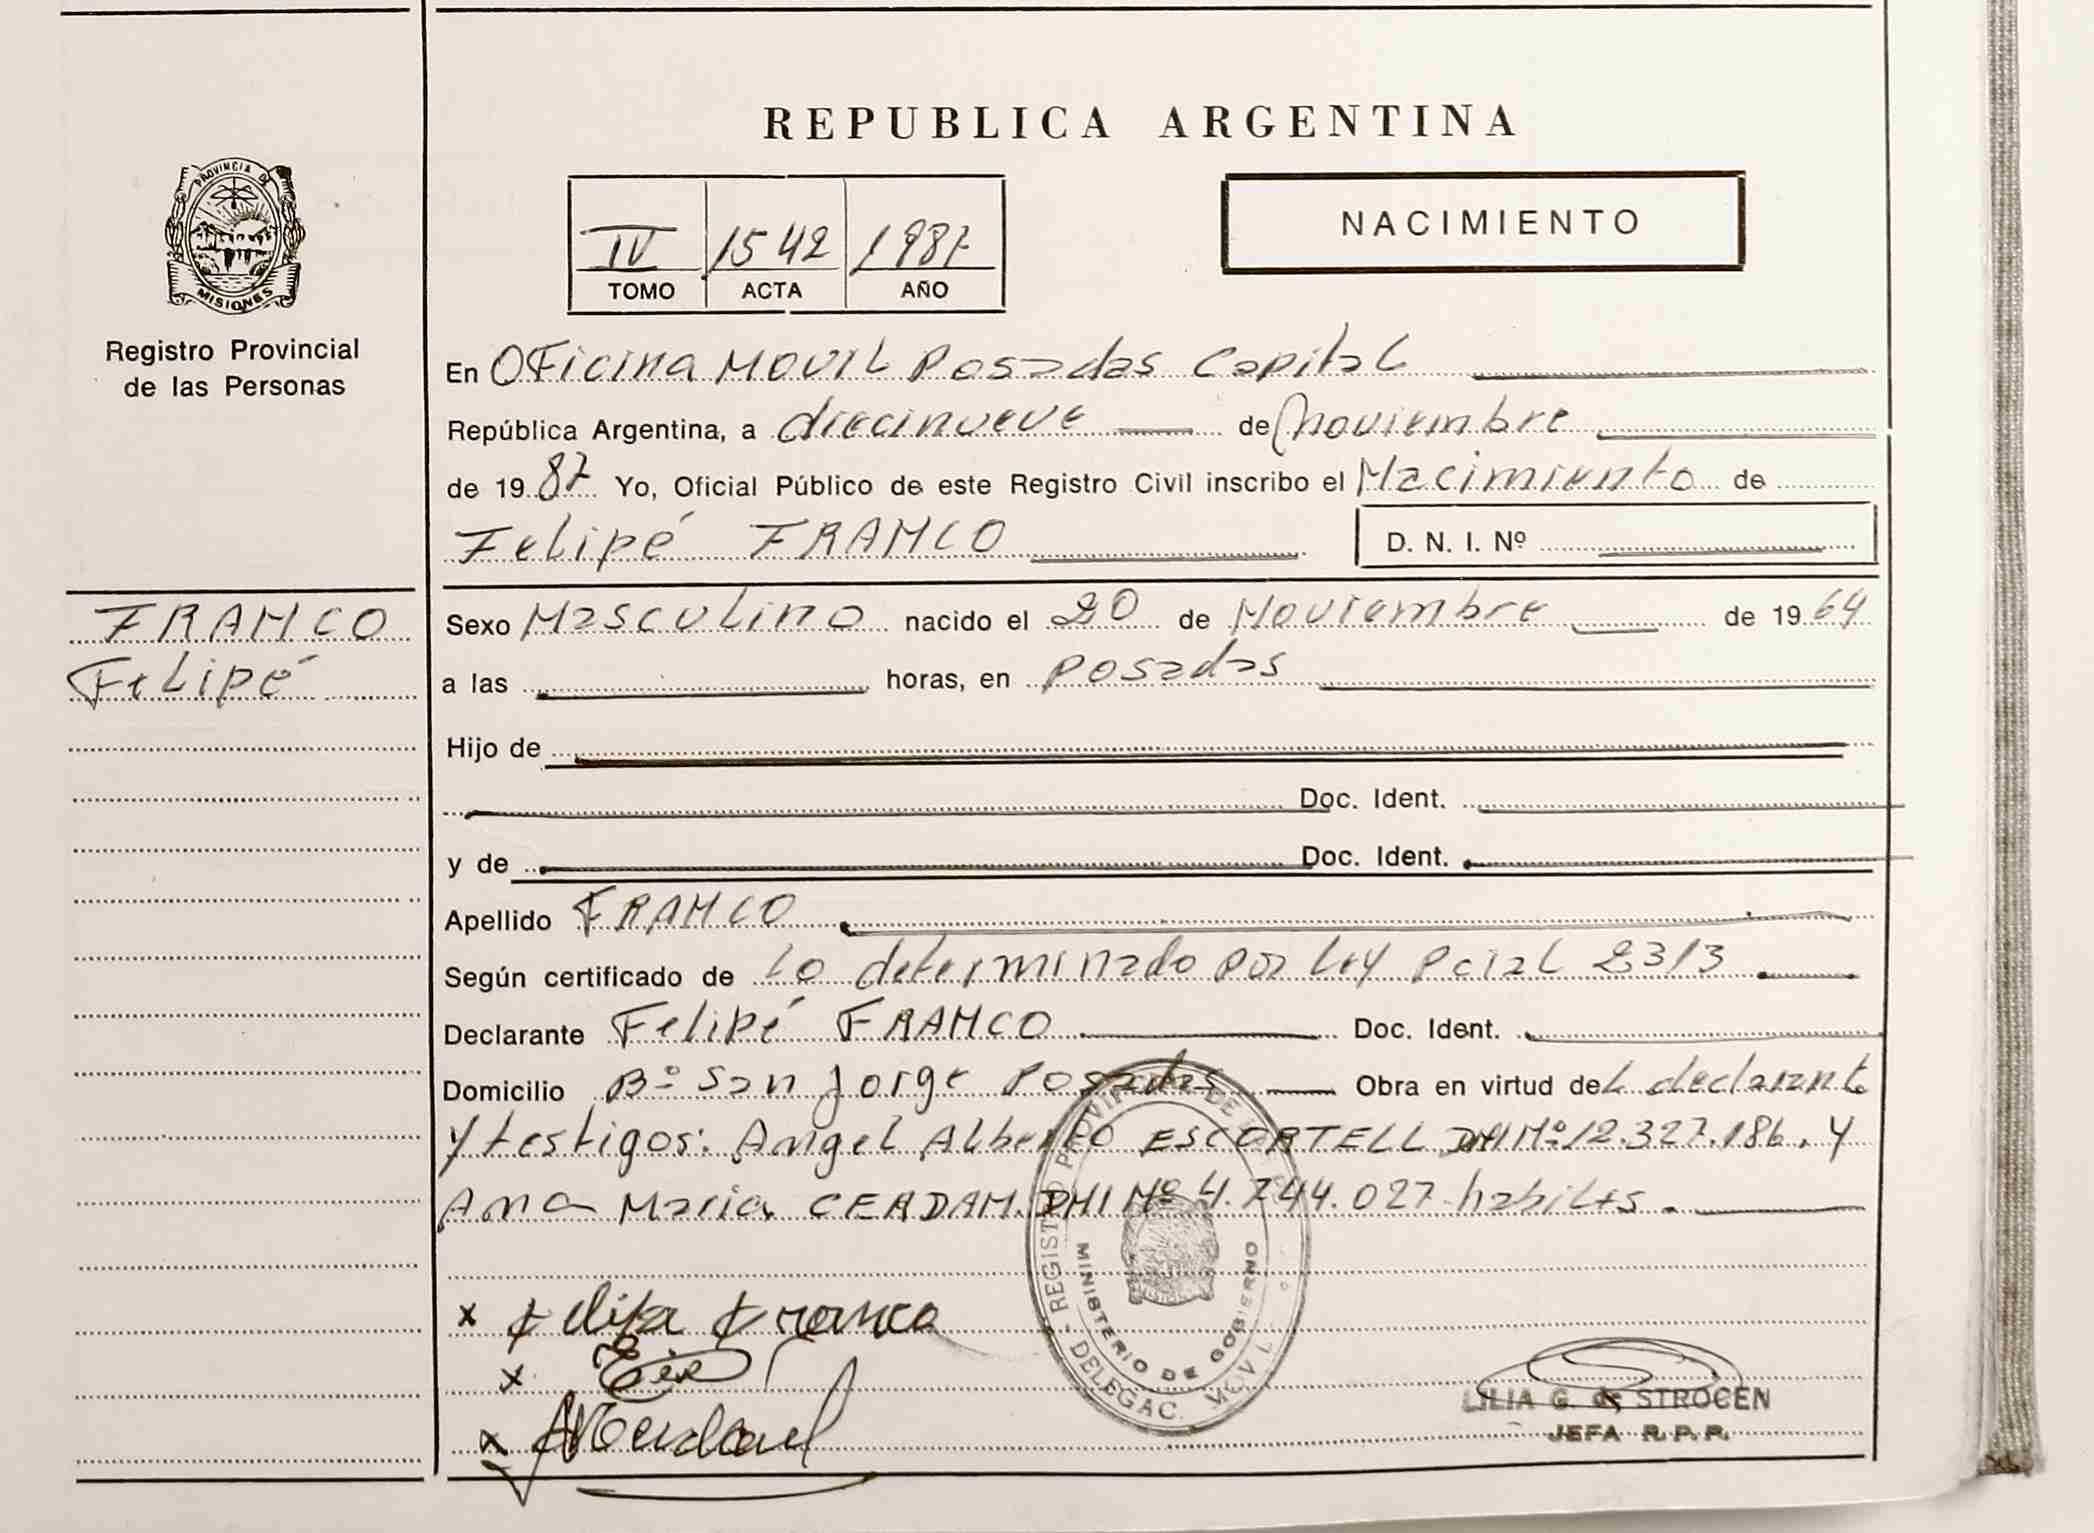 REPUBLICA ARGENTINA
PROVINCIA DE
MISIONES
Registro Provincial
de las Personas
IV 1542 1987
TOMO ACTA AÑO
NACIMIENTO
En Oficina Movil Posadas Capital
República Argentina, a diecinueve de noviembre
de 1987 Yo, Oficial Público de este Registro Civil inscribo el Nacimiento de
Felipé FRANCO D. N. I. Nº
FRANCO
Felipé
Sexo Masculino nacido el 20 de Noviembre de 1964
a las horas, en Posadas
Hijo de
Doc. Ident.
y de Doc. Ident.
Apellido FRANCO
Según certificado de Lo determinado por Ley Pcial 2313
Declarante Felipé FRANCO Doc. Ident.
Domicilio Bº San Jorge Posadas Obra en virtud del declarante
y testigos: Angel Alberto ESCORTELL DNI Nº 12.327.186. y
Ana Maria CERDAN. DNI Nº 4.744.027 habiles.
REGISTRO PROVINCIAL DE LAS
MINISTERIO DE GOBIERNO
DELEGAC. MOVIL
x Felipa Franco
x
x
LILIA G. de STROCEN
JEFA R. P. P.